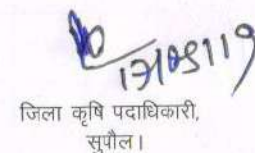 17/05/19
जिला कृषि पदाधिकारी,
सुपौल।